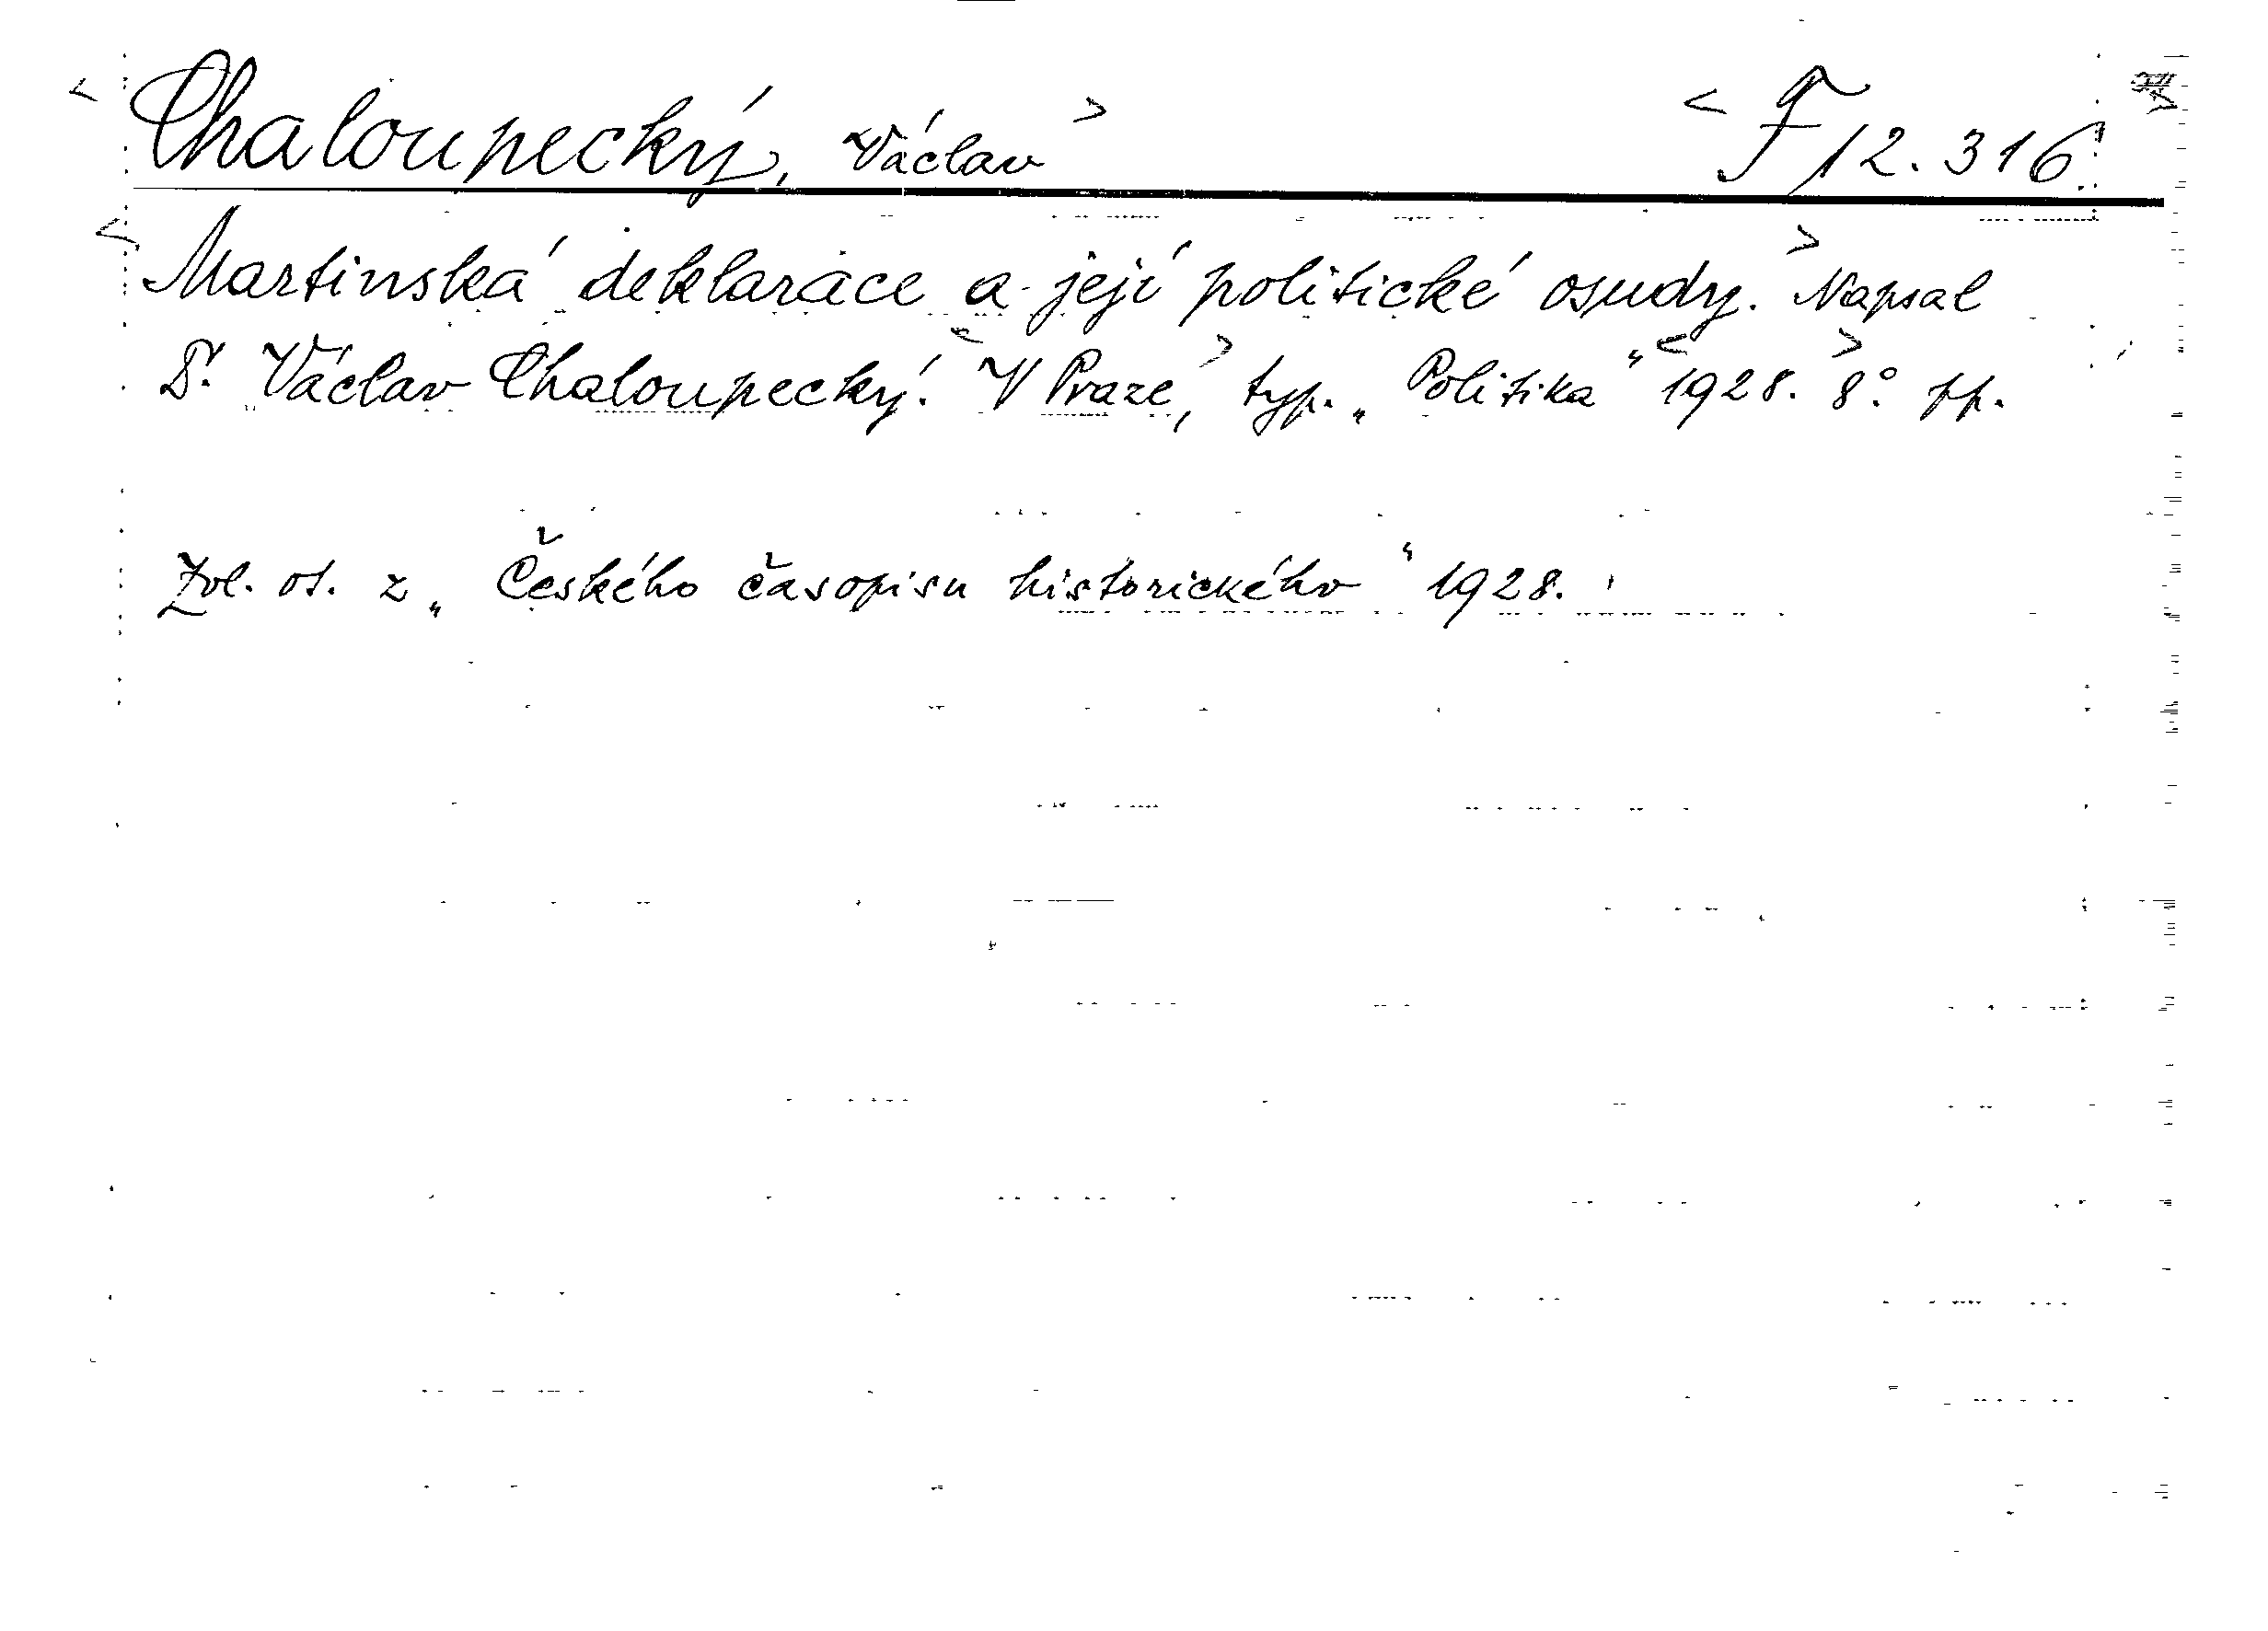 < Chaloupecký, Václav > < F 12.316. >
< Martinská deklarace a její politické osudy. > Napsal
Dr. Václav Chaloupecký. < V Praze, > typ. „Politika“ < 1928. > 8°. pp.
Zvl. ot. z „Českého časopisu historického“ 1928.